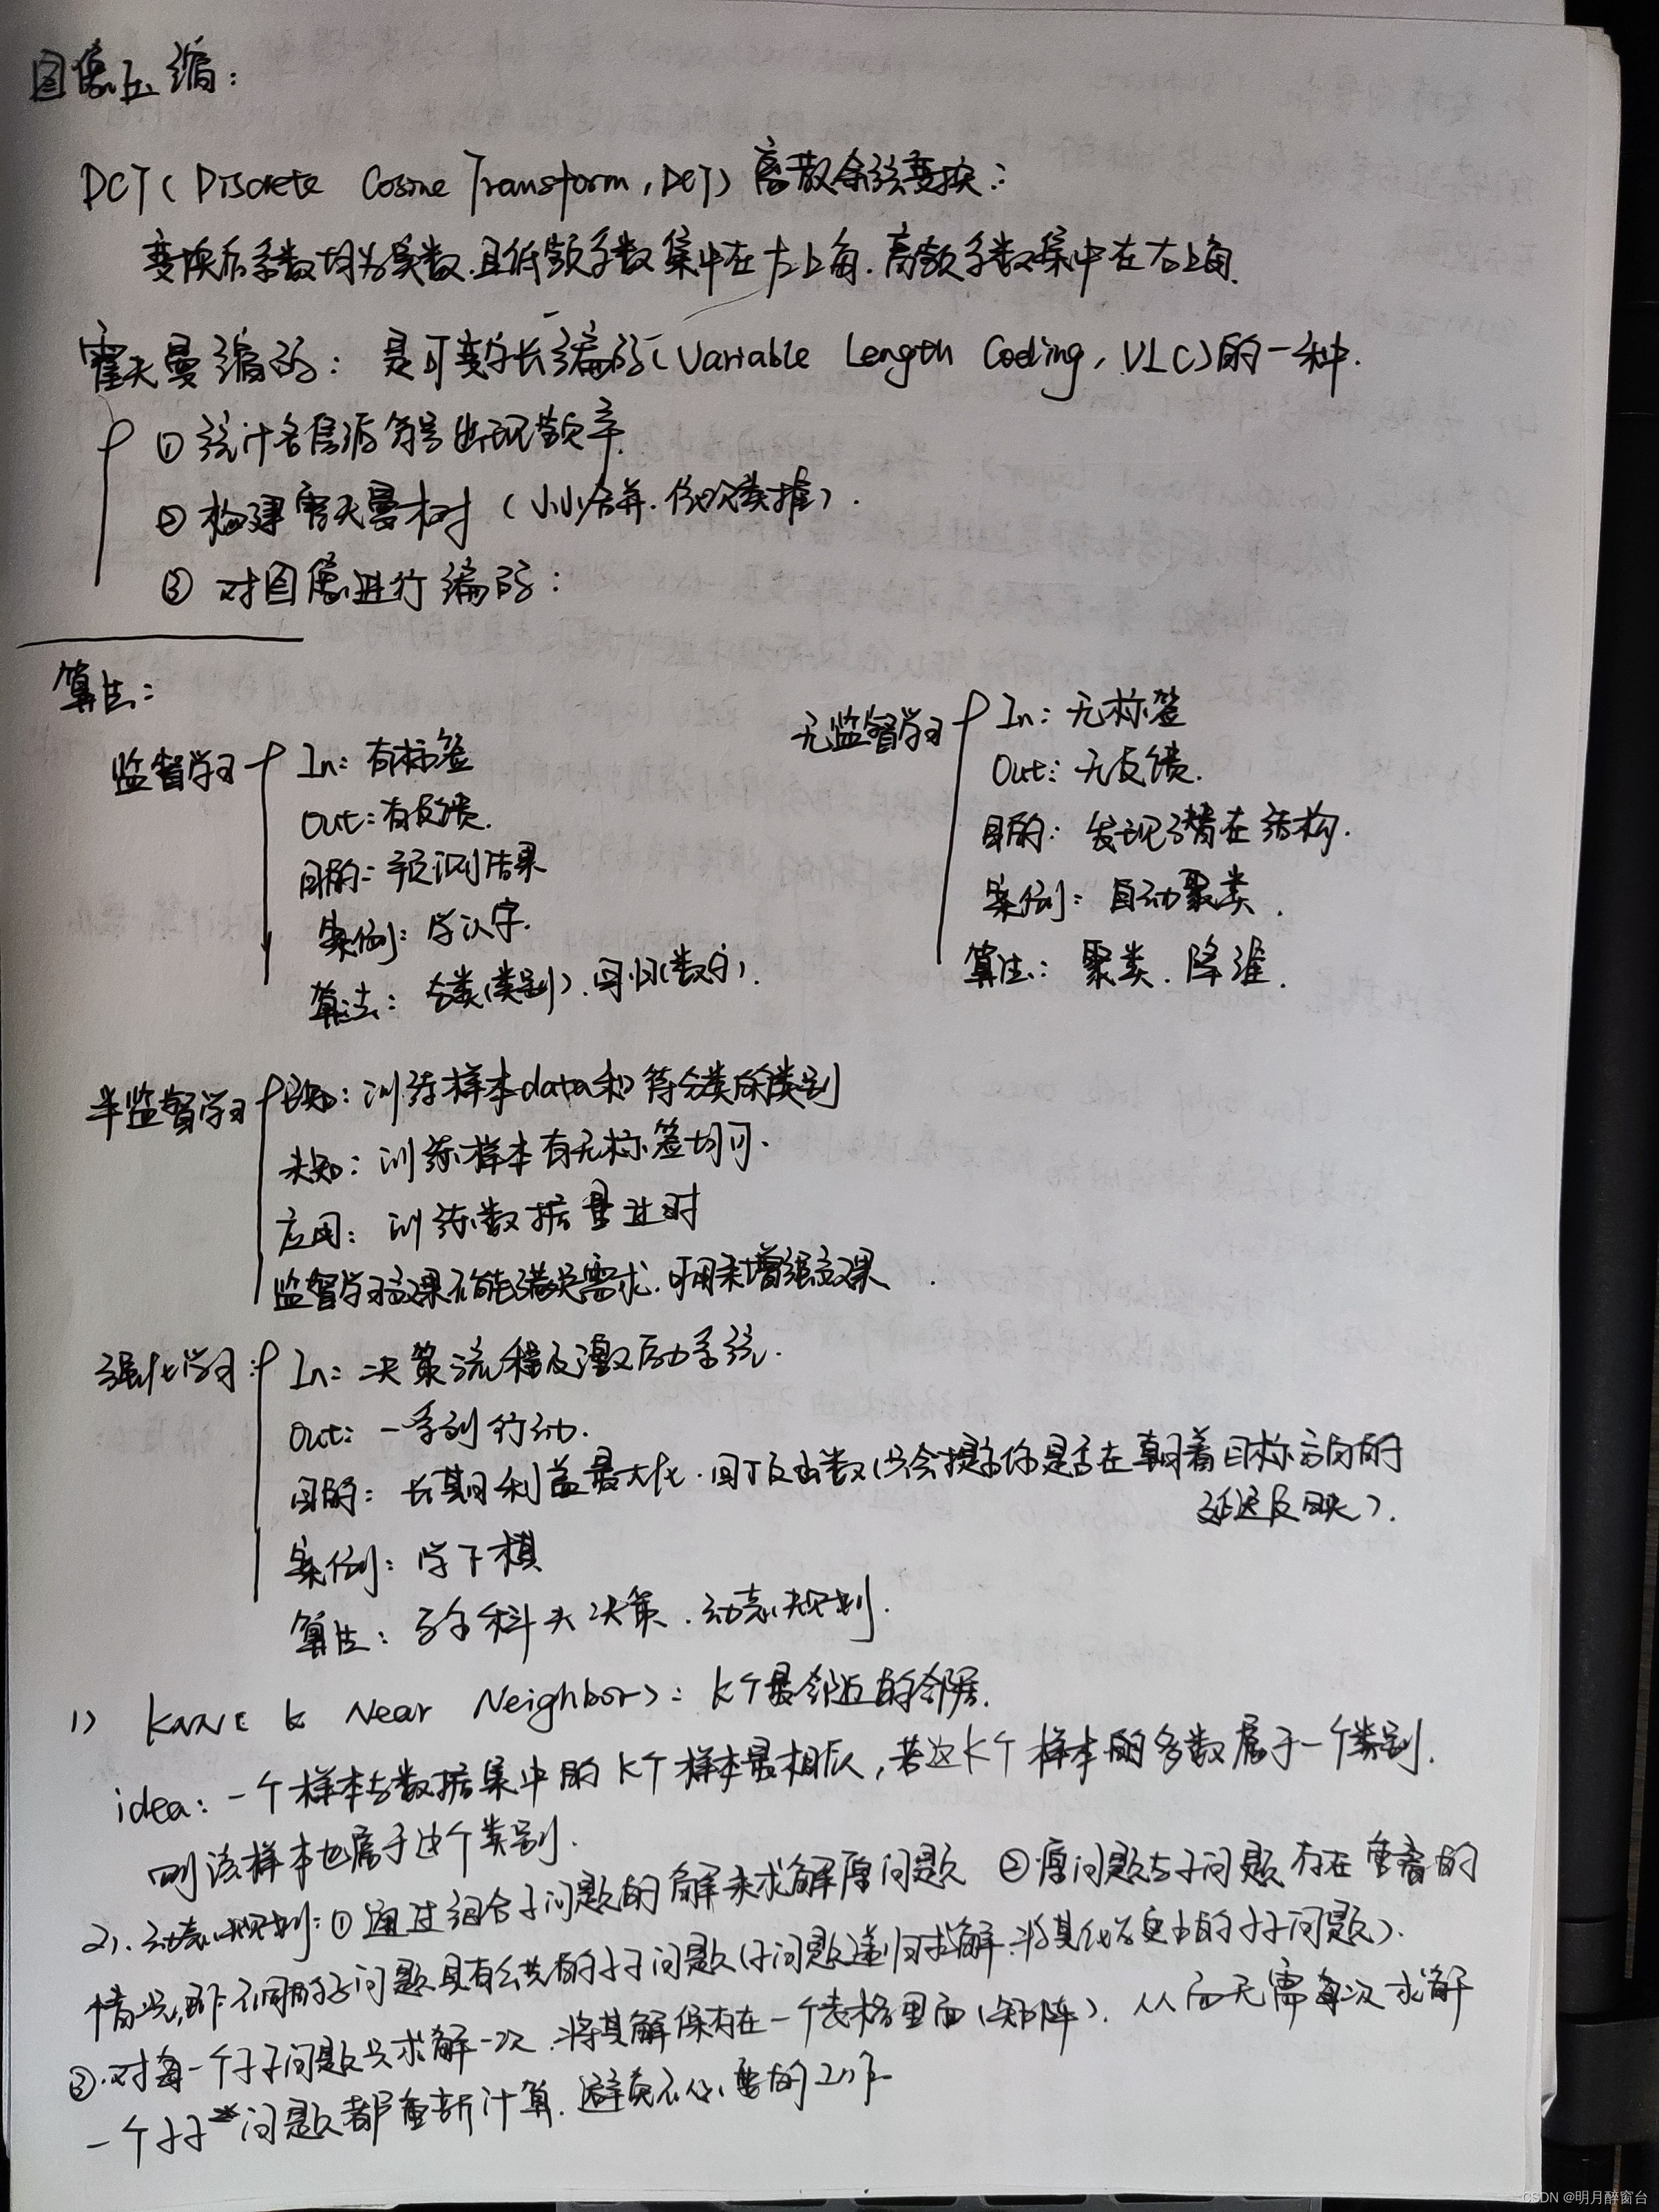 图像压缩：
DCT（Discrete Cosine Transform，DCT）离散余弦变换：
变换后系数均为实数，且低频系数集中在左上角，高频系数集中在右上角.
霍夫曼编码：是可变字长编码（Variable Length Coding，VLC）的一种.
① 统计各信源符号出现频率.
② 构建霍夫曼树（小小合并，依次类推）.
③ 对图像进行编码：
算法：
监督学习
In：有标签
Out：有反馈.
目的：预测结果
案例：学认字.
算法：分类（类别）、回归（数字）.
无监督学习
In：无标签
Out：无反馈.
目的：发现潜在结构.
案例：自动聚类.
算法：聚类、降维.
半监督学习
已知：训练样本data和待分类的类别
未知：训练样本有无标签均可.
应用：训练数据量过时
监督学习效果不能满足需求，可用来增强效果.
强化学习：
In：决策流程及激励系统.
Out：一系列行动.
目的：长期利益最大化，回报函数（只会提示你是否在朝着目标方向的
延迟反映）.
案例：学下棋
算法：马尔科夫决策、动态规划.
1) KNN（K Near Neighbor）：K个最邻近的邻居.
idea：一个样本与数据集中的K个样本最相似，若这K个样本的多数属于一个类别.
则该样本也属于这个类别.
2). 动态规划：① 通过组合子问题的解来求解原问题 ② 原问题与子问题存在重叠的
情况，即不同的子问题具有公共的子子问题（子问题递归求解，将其化为更小的子子问题）.
③ 对每一个子子问题只求解一次，将其解保存在一个表格里面（矩阵），从而无需每次求解
一个子子问题都重新计算，避免不必要的工作
CSDN @明月醉窗台